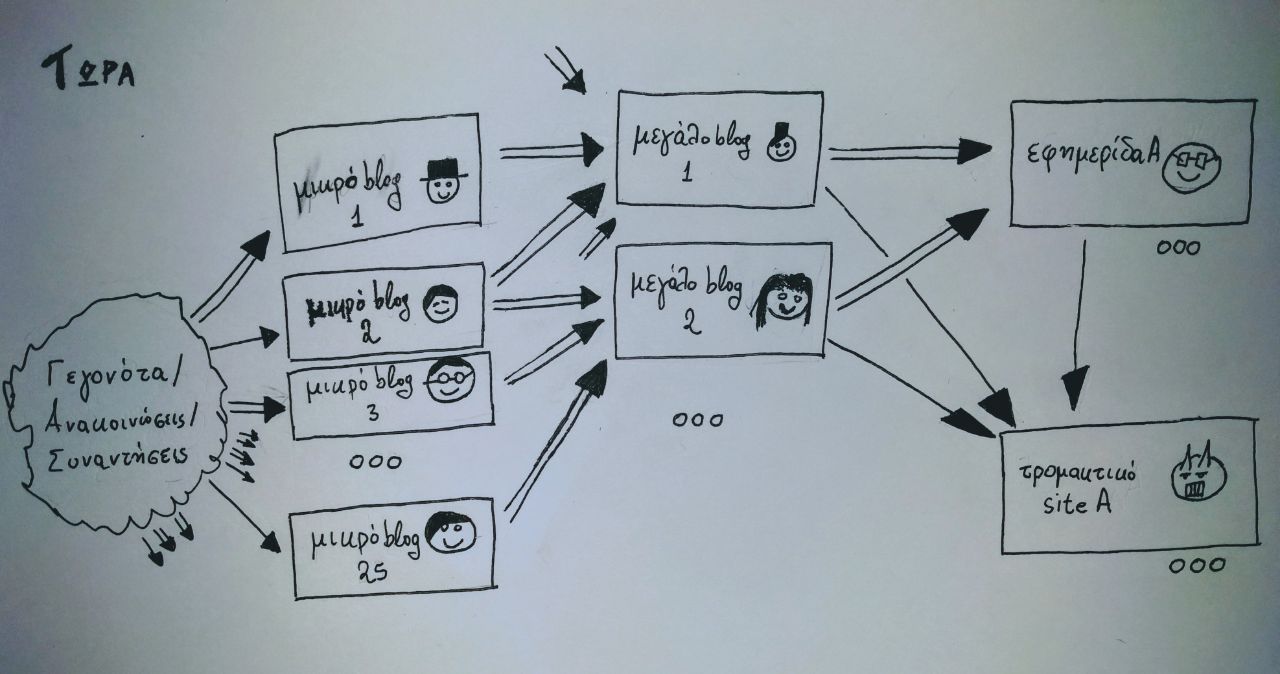 ΤΩΡΑ
Γεγονότα/
Ανακοινώσεις/
Συναντήσεις
μικρό blog
1
μικρό blog
2
μικρό blog
3
μικρό blog
25
μεγάλο blog
1
μεγάλο blog
2
εφημερίδα Α
τρομακτικό
site A